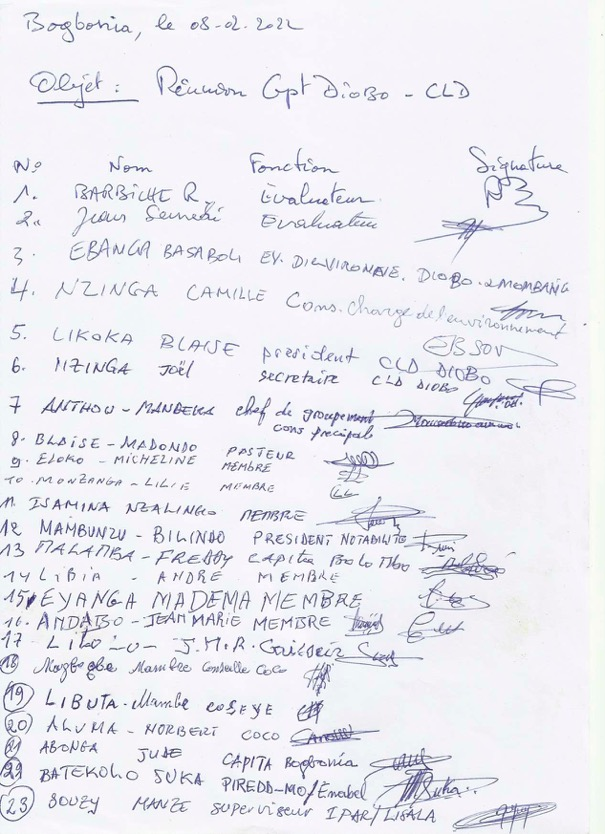 Bogbonia, le 08-02-2022
Objet : Réunion Gpt DIOBO - CLD
N° Nom Fonction Signature
1. BARBICHE R. Evaluateur
2. Jean Evaluateur
3. EBANGA BASABOLI DIOBO
4. NZINGA CAMILLE Cons. chargé de l'environnement
5. LIKOKA BLAISE président CLD DIOBO
6. NZINGA Joël secretaire CLD DIOBO
7 ANTHOU - MANDEKA chef de groupement
cons precipale
8. BLAISE - MADONDO PASTEUR
9. ELOKO - MICHELINE MEMBRE
10. MONZANGA - LILIE MEMBRE
11. ISAMINA NZALINGO MEMBRE
12 MAMBUNZU - BILINDO PRESIDENT NOTABILITE
13 MALAMBA - FREDDY Capita
14 LIBIA - ANDRE MEMBRE
15 EYANGA MADEMA MEMBRE
16. ANDABO - JEAN MARIE MEMBRE
17 J.M.R.
18 Mambre COCO
19 LIBUTA - Mambe
20 ALUMA - NORBERT COCO
21 ABONGA JUDE CAPITA Bogbonia
BATEKOLO JUKA PIREDD-MO/Enabel
23 SOUZY MANZE superviseur IPAR/LISALA